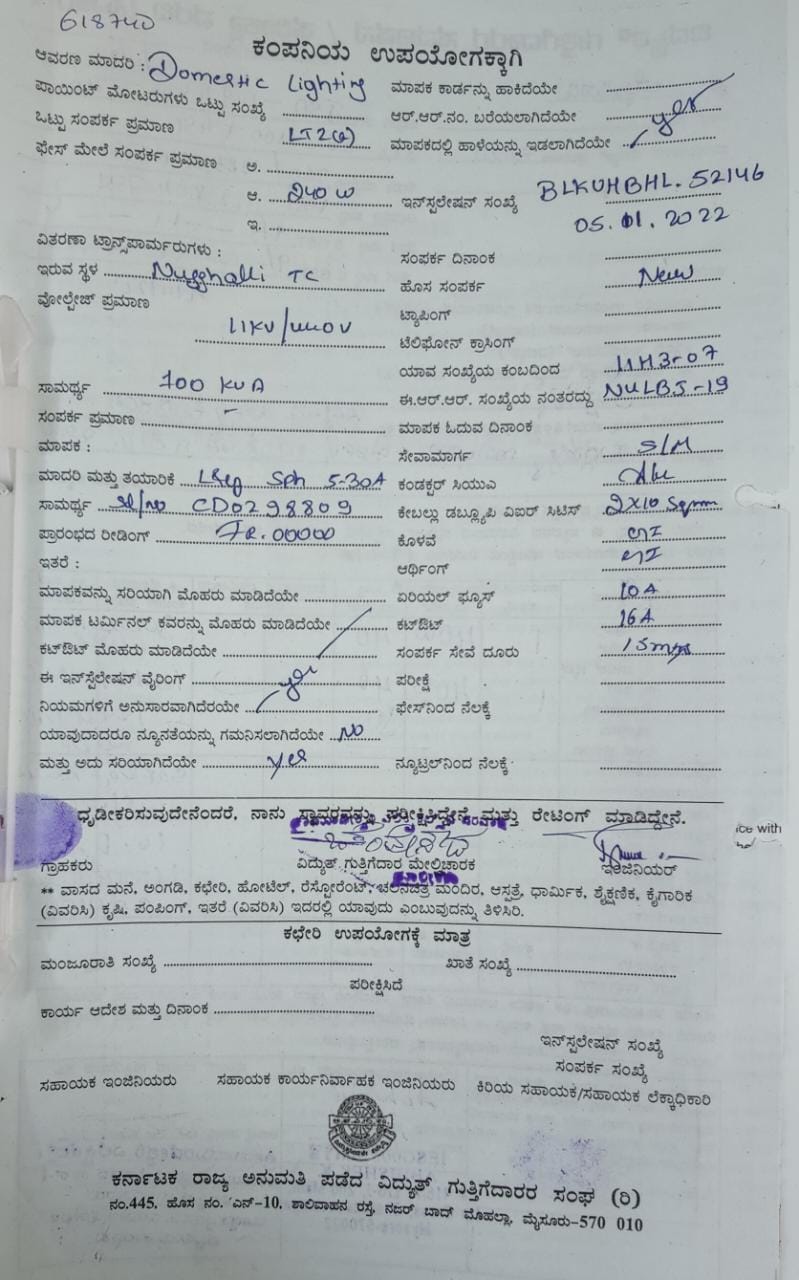 618740
ಕಂಪನಿಯ ಉಪಯೋಗಕ್ಕಾಗಿ
ಆವರಣ ಮಾದರಿ : Domestic Lighting
ಮಾಪಕ ಕಾರ್ಡನ್ನು ಹಾಕಿದೆಯೇ
ಪಾಯಿಂಟ್ ಮೋಟರುಗಳು ಒಟ್ಟು ಸಂಖ್ಯೆ
ಆರ್.ಆರ್.ನಂ. ಬರೆಯಲಾಗಿದೆಯೇ yes
ಒಟ್ಟು ಸಂಪರ್ಕ ಪ್ರಮಾಣ LT2(a)
ಮಾಪಕದಲ್ಲಿ ಹಾಳೆಯನ್ನು ಇಡಲಾಗಿದೆಯೇ
ಫೇಸ್ ಮೇಲೆ ಸಂಪರ್ಕ ಪ್ರಮಾಣ ಅ.
ಆ. 240 W
ಇನ್‌ಸ್ಟಲೇಷನ್ ಸಂಖ್ಯೆ BLKUHBHL. 52146
ಇ.
05.01.2022
ವಿತರಣಾ ಟ್ರಾನ್ಸ್‌ಫಾರ್ಮರುಗಳು :
ಸಂಪರ್ಕ ದಿನಾಂಕ
ಇರುವ ಸ್ಥಳ Nugghalli TC
ಹೊಸ ಸಂಪರ್ಕ New
ವೋಲ್ಟೇಜ್ ಪ್ರಮಾಣ
ಟ್ಯಾಪಿಂಗ್
11KV/440V
ಟೆಲಿಫೋನ್ ಕ್ರಾಸಿಂಗ್
ಯಾವ ಸಂಖ್ಯೆಯ ಕಂಬದಿಂದ 11H3-07
ಸಾಮರ್ಥ್ಯ 100 KVA
ಈ.ಆರ್.ಆರ್. ಸಂಖ್ಯೆಯ ನಂತರದ್ದು NULBJ-19
ಸಂಪರ್ಕ ಪ್ರಮಾಣ -
ಮಾಪಕ ಓದುವ ದಿನಾಂಕ
ಮಾಪಕ :
ಸೇವಾಮಾರ್ಗ S/M
ಮಾದರಿ ಮತ್ತು ತಯಾರಿಕೆ Sph 5-30A
ಕಂಡಕ್ಟರ್ ಸಿಯುಎ
ಸಾಮರ್ಥ್ಯ Sl/No CD0298809
ಕೇಬಲ್ಲು ಡಬ್ಲ್ಯೂಪಿ ವಿಐರ್ ಸಿಟಿಸ್ 2X10 Sqmm
ಪ್ರಾರಂಭದ ರೀಡಿಂಗ್ FR. 00000
ಕೊಳವೆ GI
ಇತರೆ :
ಆರ್ಥಿಂಗ್ GI
ಮಾಪಕವನ್ನು ಸರಿಯಾಗಿ ಮೊಹರು ಮಾಡಿದೆಯೇ
ಏರಿಯಲ್ ಫ್ಯೂಸ್ 10A
ಮಾಪಕ ಟರ್ಮಿನಲ್ ಕವರನ್ನು ಮೊಹರು ಮಾಡಿದೆಯೇ
ಕಟ್‌ಔಟ್ 16A
ಕಟ್‌ಔಟ್ ಮೊಹರು ಮಾಡಿದೆಯೇ
ಸಂಪರ್ಕ ಸೇವೆ ದೂರು 15mtrs
ಈ ಇನ್‌ಸ್ಟೆಲೇಷನ್ ವೈರಿಂಗ್ yes
ಪರೀಕ್ಷೆ
ನಿಯಮಗಳಿಗೆ ಅನುಸಾರವಾಗಿದೆರಯೇ
ಫೇಸ್‌ನಿಂದ ನೆಲಕ್ಕೆ
ಯಾವುದಾದರೂ ನ್ಯೂನತೆಯನ್ನು ಗಮನಿಸಲಾಗಿದೆಯೇ No
ಮತ್ತು ಅದು ಸರಿಯಾಗಿದೆಯೇ yes
ನ್ಯೂಟ್ರಲ್‌ನಿಂದ ನೆಲಕ್ಕೆ
ಧೃಡೀಕರಿಸುವುದೇನೆಂದರೆ, ನಾನು ಸ್ಥಾವರವನ್ನು ಪರೀಕ್ಷಿಸಿದ್ದೇನೆ ಮತ್ತು ರೇಟಿಂಗ್ ಮಾಡಿದ್ದೇನೆ.
ice with
ಗ್ರಾಹಕರು
ವಿದ್ಯುತ್ ಗುತ್ತಿಗೆದಾರ ಮೇಲಿಚಾರಕ
ಇಂಜಿನಿಯರ್
** ವಾಸದ ಮನೆ, ಅಂಗಡಿ, ಕಛೇರಿ, ಹೋಟೆಲ್, ರೆಸ್ಟೋರೆಂಟ್, ಚಲನಚಿತ್ರ ಮಂದಿರ, ಆಸ್ಪತ್ರೆ, ಧಾರ್ಮಿಕ, ಶೈಕ್ಷಣಿಕ, ಕೈಗಾರಿಕ
(ವಿವರಿಸಿ) ಕೃಷಿ, ಪಂಪಿಂಗ್, ಇತರೆ (ವಿವರಿಸಿ) ಇದರಲ್ಲಿ ಯಾವುದು ಎಂಬುವುದನ್ನು ತಿಳಿಸಿರಿ.
ಕಛೇರಿ ಉಪಯೋಗಕ್ಕೆ ಮಾತ್ರ
ಮಂಜೂರಾತಿ ಸಂಖ್ಯೆ
ಖಾತೆ ಸಂಖ್ಯೆ
ಪರೀಕ್ಷಿಸಿದೆ
ಕಾರ್ಯ ಆದೇಶ ಮತ್ತು ದಿನಾಂಕ
ಇನ್‌ಸ್ಟಲೇಷನ್ ಸಂಖ್ಯೆ
ಸಂಪರ್ಕ ಸಂಖ್ಯೆ
ಸಹಾಯಕ ಇಂಜಿನಿಯರು
ಸಹಾಯಕ ಕಾರ್ಯನಿರ್ವಾಹಕ ಇಂಜಿನಿಯರು
ಕಿರಿಯ ಸಹಾಯಕ/ಸಹಾಯಕ ಲೆಕ್ಕಾಧಿಕಾರಿ
ಕರ್ನಾಟಕ ರಾಜ್ಯ ಅನುಮತಿ ಪಡೆದ ವಿದ್ಯುತ್ ಗುತ್ತಿಗೆದಾರರ ಸಂಘ (ರಿ)
ನಂ.445, ಹೊಸ ನಂ. ಎನ್-10, ಶಾಲಿವಾಹನ ರಸ್ತೆ, ನಜರ್ ಬಾದ್ ಮೊಹಲ್ಲಾ, ಮೈಸೂರು-570 010